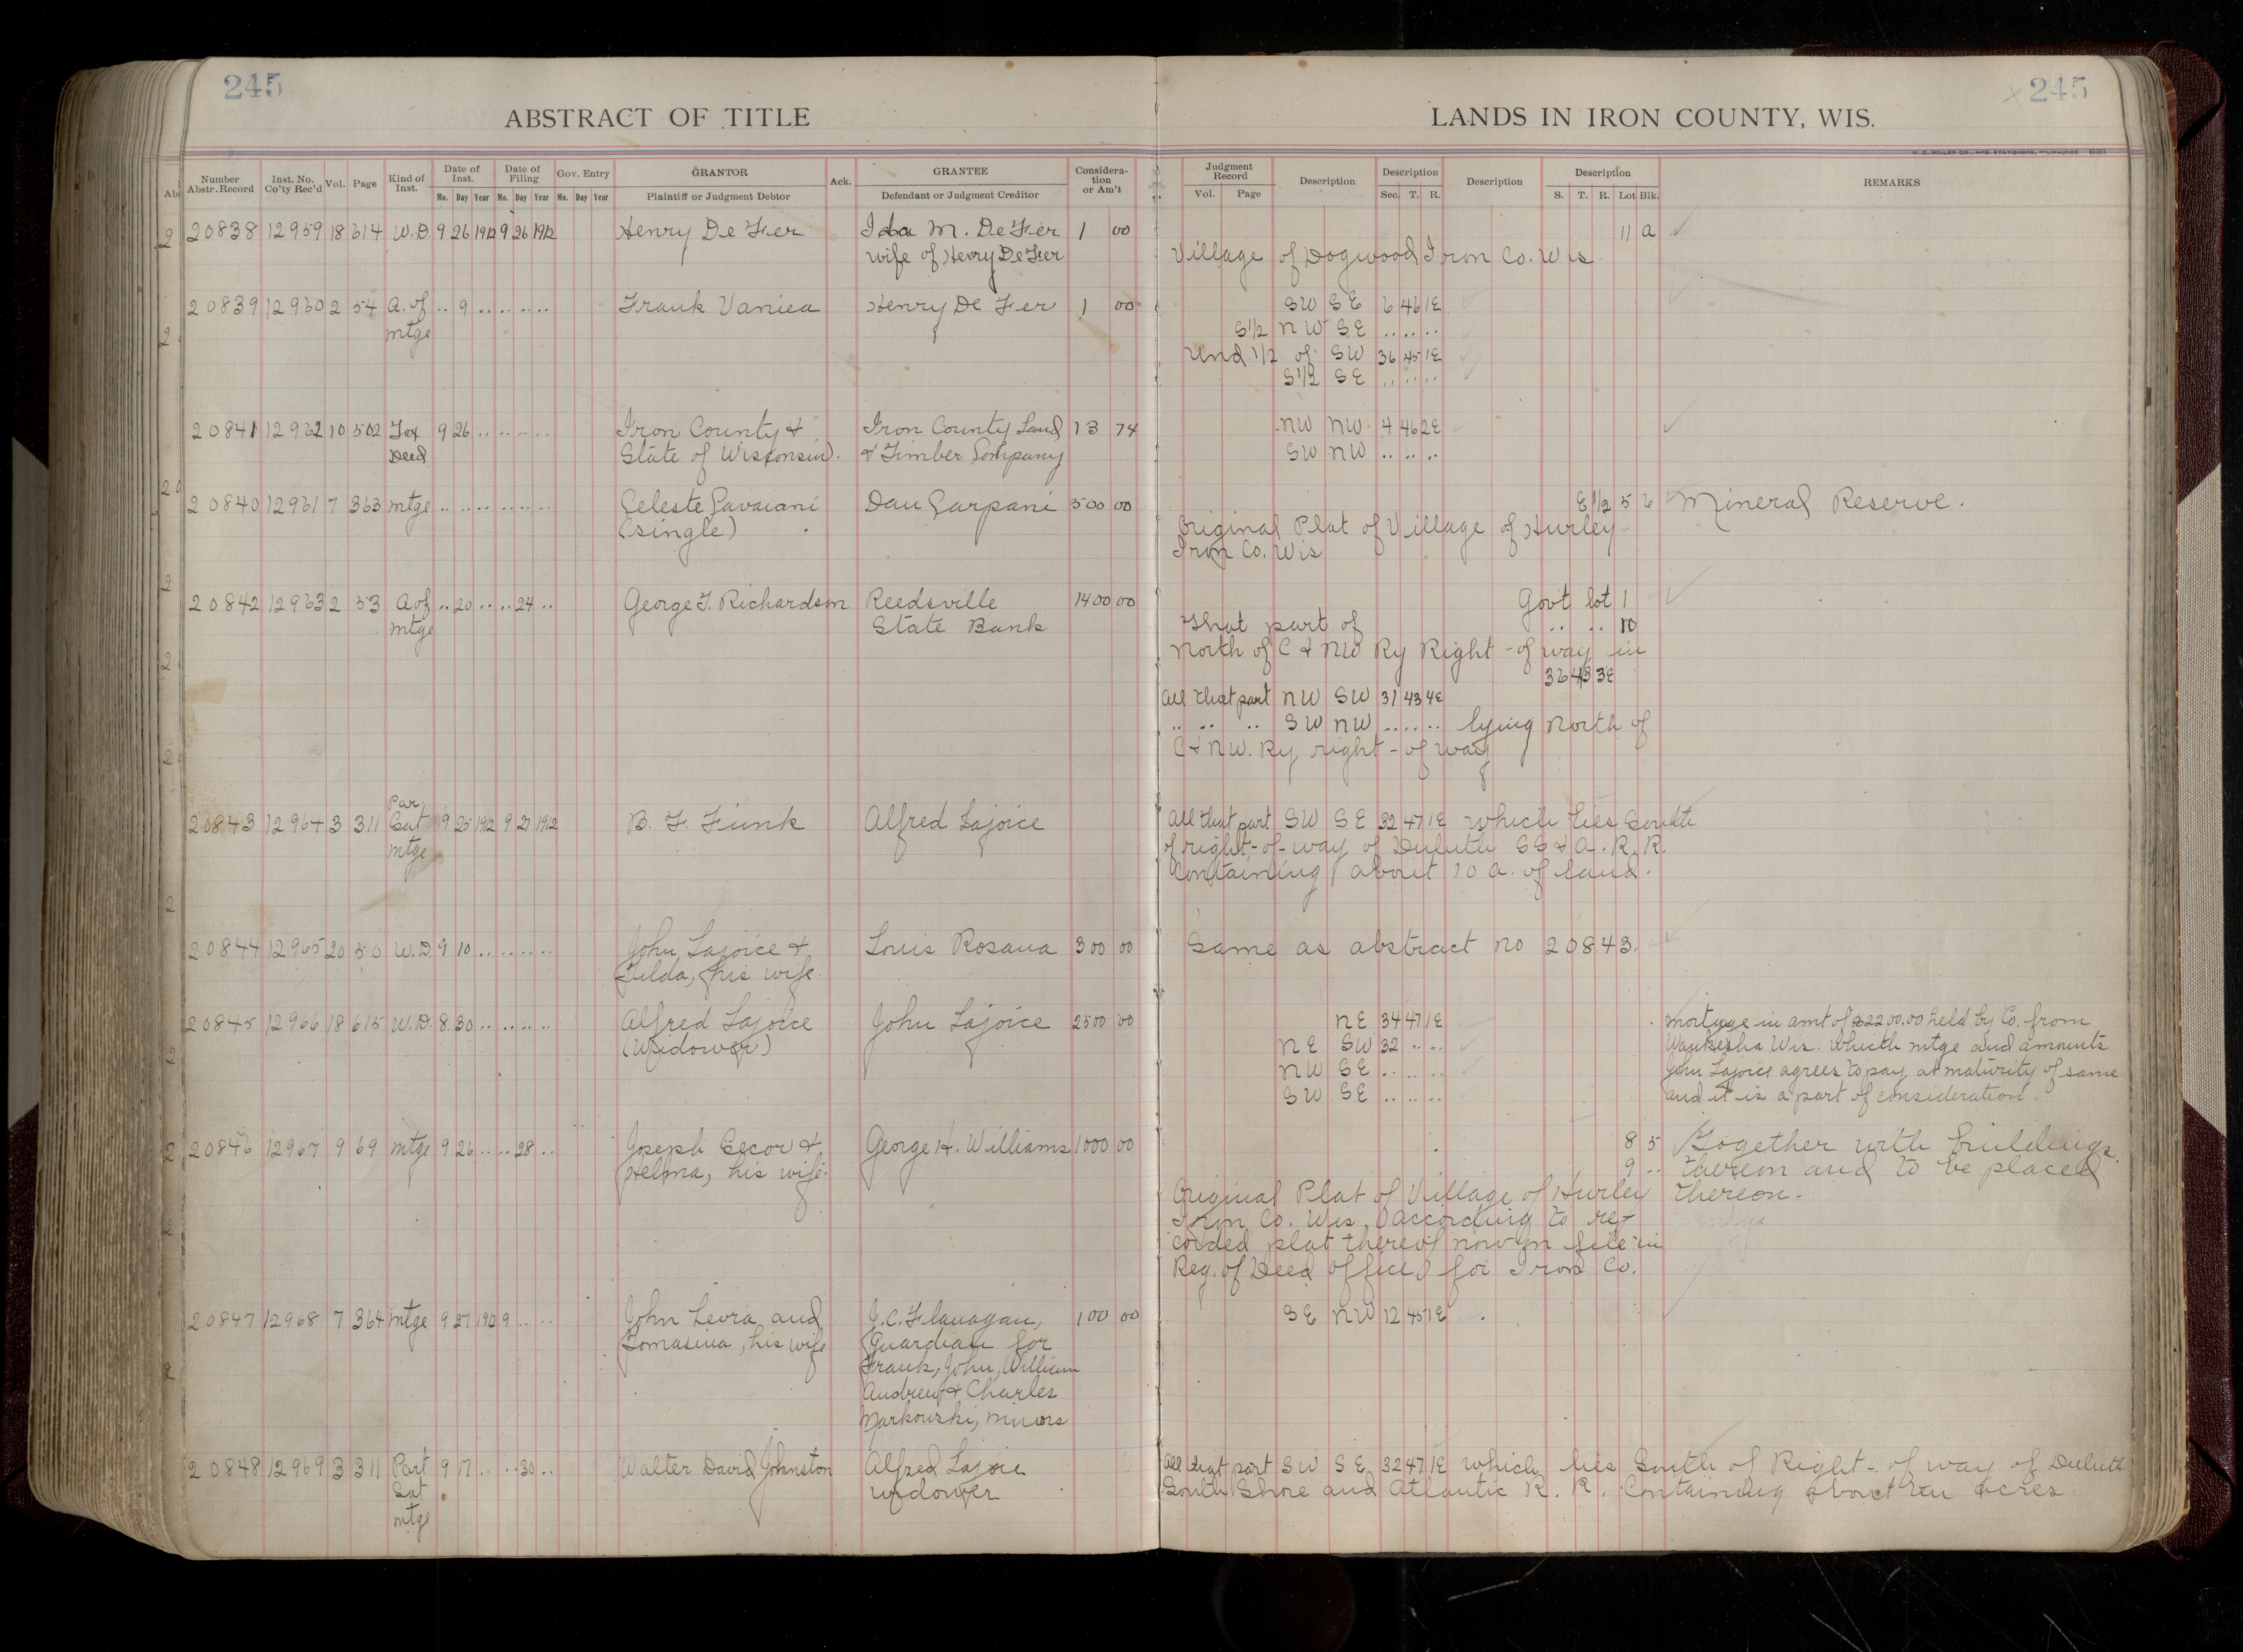 245
245
ABSTRACT OF TITLE
LANDS IN IRON COUNTY, WIS.
H. C. MILLER CO., MFG. STATIONERS, MILWAUKEE
Number Abstr. Record Inst. No. Co'ty Rec'd Vol. Page Kind of Inst. Date of Inst. Mo. Day Year Date of Filing Mo. Day Year Gov. Entry Mo. Day Year GRANTOR Plaintiff or Judgment Debtor Ack. GRANTEE Defendant or Judgment Creditor Considera-tion or Am't Judgment Record Vol. Page Description Description Sec. T. R. Description Description S. T. R. Lot Blk. REMARKS
20838 12959 18 614 W.D. 9 26 1912 9 26 1912 Henry De Fer Ida M. De Fer 1 00 11 a
wife of Henry De Fer Village of Dogwood Iron Co. Wis
20839 12960 2 54 A. of .. 9 .. .. .. .. Frank Vaniea Henry De Fer 1 00 SW SE 6 46 1E
mtge S1/2 NW SE .. .. ..
Und 1/2 of SW 36 45 1E
S1/2 SE .. .. ..
20841 12962 10 502 Tax 9 26 .. .. .. .. Iron County & Iron County Land 13 74 NW NW 4 46 2E
Deed State of Wisconsin. & Timber Company SW NW .. .. ..
20840 12961 7 363 mtge .. .. .. .. .. .. Celeste Cavaiani Dan Carpani 500 00 E 1/2 5 6 Mineral Reserve.
(single) Original Plat of Village of Hurley
Iron Co. Wis
20842 12963 2 53 A of .. 20 .. .. 24 .. George T. Richardson Reedsville 1400 00 Gov't lot 1
mtge State Bank That part of .. .. 10
North of C & NW Ry Right-of way in
36 43 3E
All that part NW SW 31 43 4E
.. .. .. SW NW .. .. .. lying North of
C & NW. Ry right-of way
20843 12964 3 311 Par Sat mtge 9 25 1912 9 27 1912 B. F. Funk Alfred Lajoice All that part SW SE 32 47 1E which lies South
of right-of-way of Duluth SS & A. R. R.
Containing about 10 a. of land.
20844 12965 20 50 W.D. 9 10 .. .. .. .. John Lajoice & Louis Rosana 300 00 Same as abstract no 20843.
his wife.
20845 12966 18 615 W.D. 8 30 .. .. .. .. Alfred Lajoice John Lajoice 2500 00 NE 34 47 1E Mortgage in amt of $2200.00 held by Co. from
(Widower) NE SW 32 .. .. Waukesha Wis. which mtge and amounts
NW SE .. .. .. John Lajoice agrees to pay at maturity of same
SW SE .. .. .. and it is a part of consideration.
20846 12967 9 69 mtge 9 26 .. .. 28 .. Joseph Secor & George H. Williams 1000 00 8 5 Together with buildings
Helma, his wife. 9 .. thereon and to be placed
Original Plat of Village of Hurley thereon.
Iron Co. Wis, according to re-
corded plat thereof now on file in
Reg. of Deed office for Iron Co.
20847 12968 7 364 mtge 9 27 1912 9 .. .. John Levra and J. C. Flanagan, 100 00 SE NW 12 45 1E
Tomasina, his wife Guardian for
Frank, John, William
Andrew & Charles
Markouski, minors
20848 12969 3 311 Part 9 17 .. .. 30 .. Walter David Johnston Alfred Lajoie All that part SW SE 32 47 1E which lies South of Right-of way of Duluth
Sat widower South Shore and Atlantic R. R. Containing about ten acres
mtge